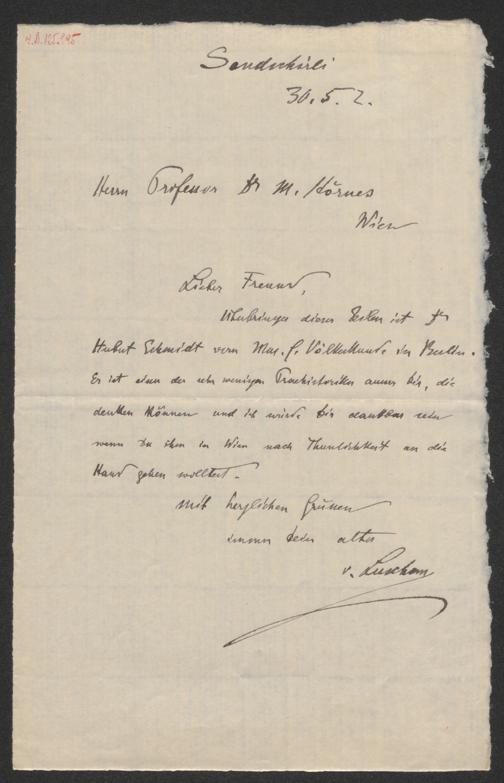 H.I.N. 125.945
Sendschirli
30.5.2.
Herrn Professor Dr M. Hörnes
Wien
Lieber Freund,
Überbringer dieser Zeilen ist Dr
Hubert Schmidt vom Mus. f. Völkerkunde in Berlin.
Er ist einer der sehr wenigen Praehistoriker ausser Dir, die
denken können und ich würde Dir dankbar sein
wenn Du ihm in Wien nach Thunlichkeit an die
Hand gehen wolltest.
Mit herzlichen Grüssen
immer Dein alter
v. Luschan